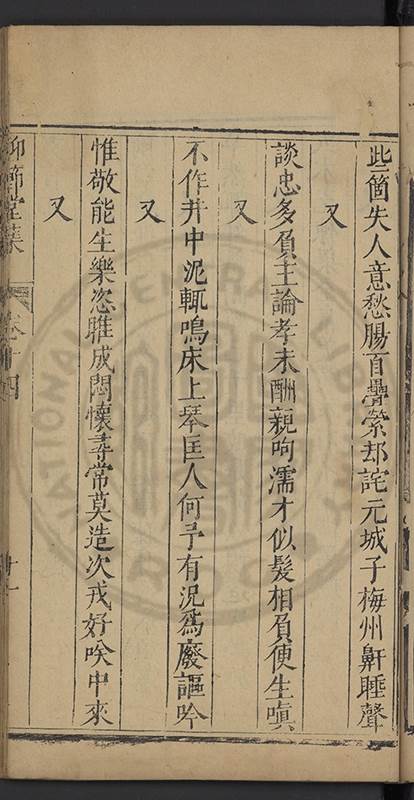 些箇失人意愁腸百疊縈却詫元城子梅州鼾睡聲
又
談忠多負主論孝未酬親呴濡才似髮相負便生嗔
又
不作井中泥輒鳴床上琴匡人何予有況爲廢謳吟
又
惟敬能生樂恣雎成悶懷尋常莫造次戎好唉中來
又
卷十四